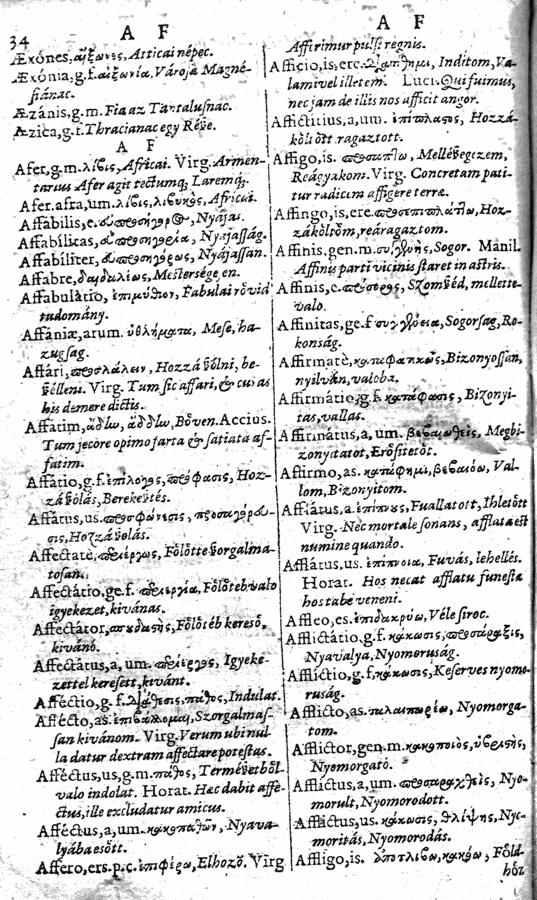 34
A F
Æxónes, αἰξωνες, Atticai népec.
Æxónia, g.f. αἰξωνία, Városa Magné-
siánac.
Æzánis, g.m. Fia az Tantalusnac.
Æzica, g.f. Thracianac egy Rése.
A F
Afer, g.m. λίβις, Africai. Virg. Armen-
tarius Afer agit tectumq; Laremq;.
Afer, afra, um. λίβις, λιβυκὸς, Africai.
Affabilis, e. Nyájas.
Affabílitas, Nyájasság.
Affabíliter, Nyájassan.
Affabre, δαιδαλέως, Mesterségessen.
Affabulátio, ἐπιμύθιον, Fabulai rövid
tudomány.
Affániæ, arum. ὑθλήματα, Mese, ha-
zugsag.
Affári, προσλαλεῖν, Hozzá szólni, be-
szélleni. Virg. Tum sic affari, & curas
his demere dictis.
Affatim, ἄδην, Bőven. Accius.
Tum jecore opimo farta & satiata af-
fatim.
Affátio, g.f. ἐπίλογος, πρόφασις, Hoz-
zá szólás, Berekesztés.
Affátus, us. προσφώνεσις, προσαγόρευ-
σις, Hozzá szólás.
Affectate, περιέργως, Fölötte szorgalma-
tosan.
Affectátio, ge.f. περιεργία, Fölötéb való
igyekezet, kivánas.
Affectátor, σπουδαστὴς, Fölötéb kereső,
kivánó.
Affectátus, a, um. περίεργος, Igyeke-
zettel keresett, kivánt.
Afféctio, g.f. διάθεσις, πάθος, Indulat.
Affécto, as. ἐπιβάλλομαι, Szorgalmas-
san kivánom. Virg. Verum ubi nul-
la datur dextram affectare potestas.
Afféctus, us, g.m. πάθος, Termêszetből
valo indolat. Horat. Hæc dabit affe-
ctus, ille excludatur amicus.
Afféctus, a, um. κακοπαθῶν, Nyava-
lyába esött.
Affero, ers. p.c. ἐπιφέρω, Elhozō. Virg
A F
Affirimur pulsi regnis.
Afficio, is, ere. διατίθημι, Inditom, Va-
lamivel illetem. Luci. Qui fuimus,
nec jam de illis nos afficit angor.
Affictitius, a, um. ἐπίπλαστος, Hozzá-
költött, ragaztott.
Affigo, is. Mellészegezem,
Reágyakom. Virg. Concretam pati-
tur radicem affigere terræ.
Affingo, is, ere. προσεπιπλάττω, Hoz-
zákőltöm, reáragaztom.
Affinis, gen. m. συγγενὴς, Sogor. Manil.
Affinis parti vicinis staret in astris.
Affinis, e. πρόσορος, Szomszéd, mellette-
valo.
Affinitas, ge.f. συγγένεια, Sogorsag, Ro-
konság.
Affirmatè, καταφατικῶς, Bizonyossan,
nyilván, valoba.
Affirmátio, g.f. κατάφασις, Bizonyi-
tas, vallas.
Affirmátus, a, um. βεβαιωθεὶς, Megbi-
zonyitatot, Erősitetöt.
Affirmo, as. κατάφημι, βεβαιόω, Val-
lom, Bizonyitom.
Afflátus, a. ἐπίπνους, Fuallatott, Ihletött
Virg. Nec mortale sonans, afflata est
numine quando.
Afflátus, us. ἐπίπνοια, Fuvás, lehellés.
Horat. Hos necat afflatu funesta
hos tabe veneni.
Affleo, es. ἐπιδακρύω, Véle siroc.
Afflictátio, g.f. κάκωσις, προσάραξις,
Nyavalya, Nyomoruság.
Afflíctio, g.f. κάκωσις, Keserves nyomo-
ruság.
Afflicto, as. ταλαιπωρέω, Nyomorga-
tom.
Afflictor, gen. m. κακοποιὸς, ὑβριστὴς,
Nyomorgató.
Afflictus, a, um. προσαραχθεὶς, Nyo-
morult, Nyomorodott.
Afflictus, us. κάκωσις, θλίψης, Nyo-
moritás, Nyomorodás.
Affligo, is. ἀποτλιβω, κακόω, Föld-
höz